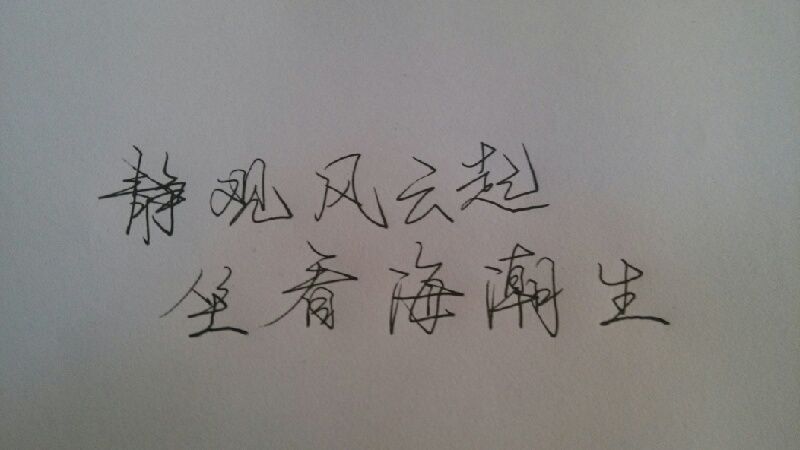 静观风云起
坐看海潮生